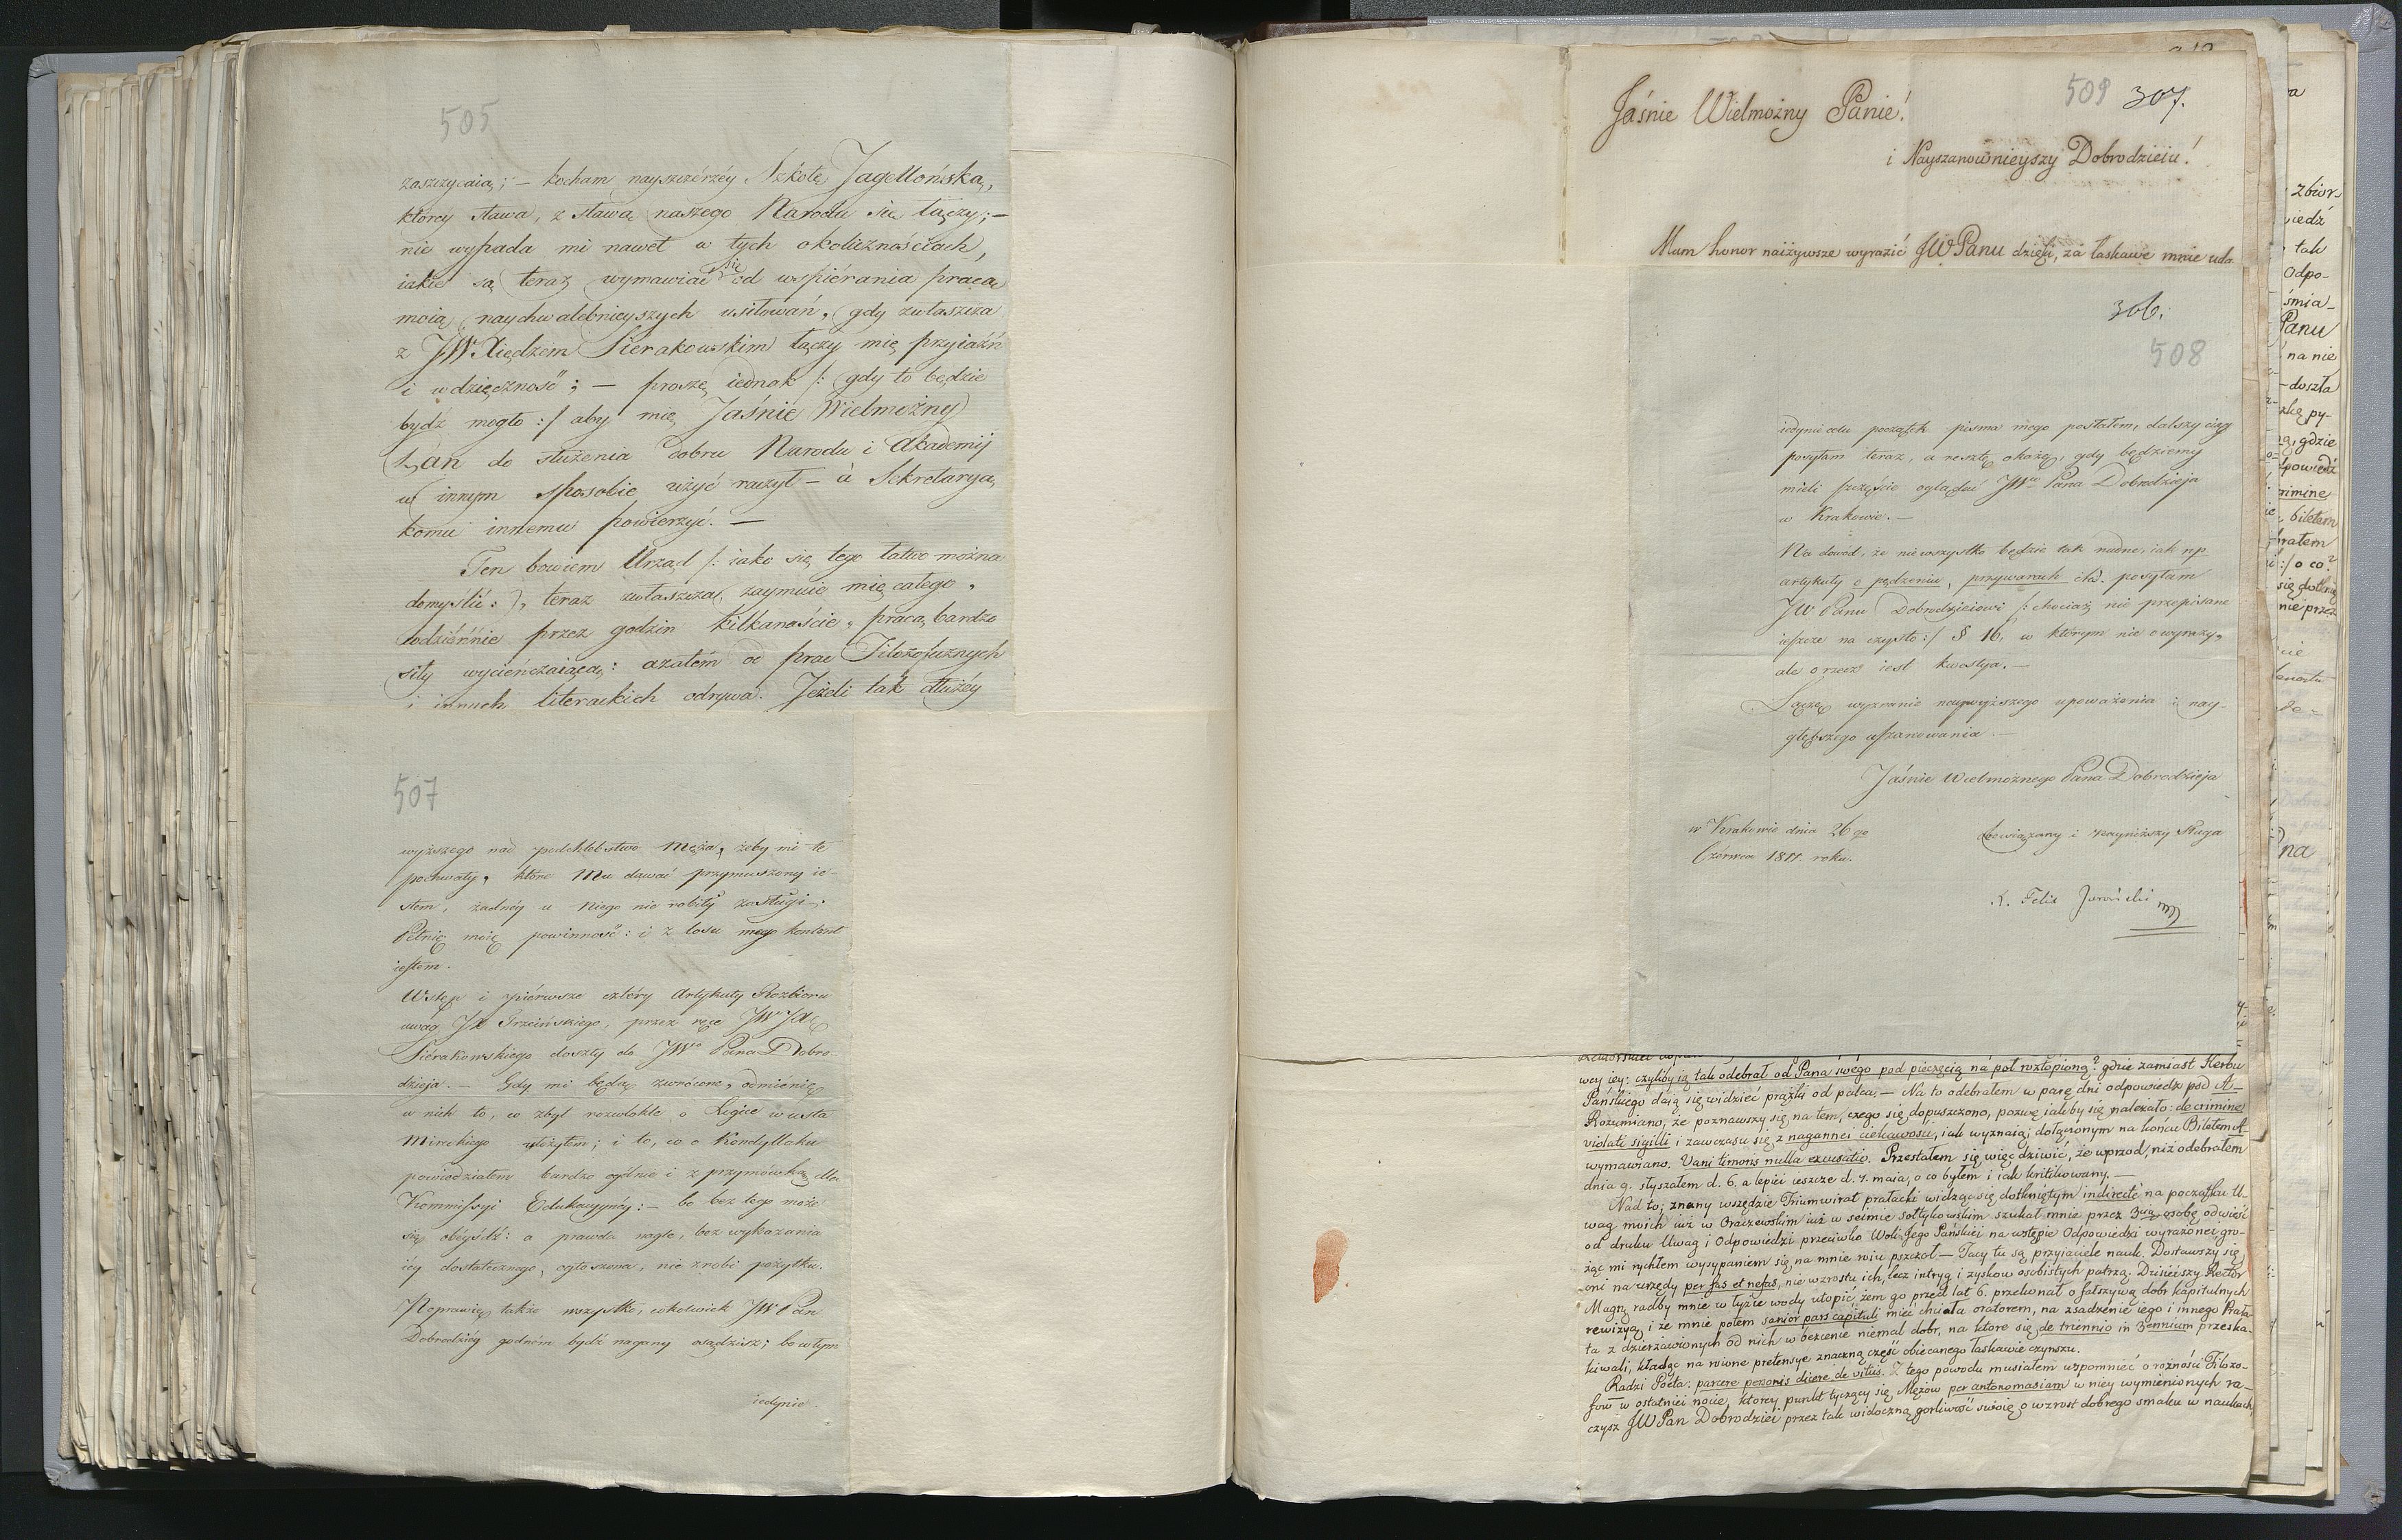 505
zaszczycaią; – kocham nayszczérzéy Szkołę Jagellońską,
którey sława, z sławą naszego Narodu się łączy; –
nie wypada mi nawet w tych okolicznościach,
iakie są teraz wymawiać się od wspiérania pracą
moią naychwalebnieyszych usiłowań, gdy zwłaszcza
z JW Xiędzem Sierakowskim łączy mię przyiaźń
i wdzięczność; – proszę iednak /: gdy to będzie
bydź mogło :/ aby mię Jaśnie Wielmożny
Pan do służenia dobru Narodu i Akademij
w innym sposobie użyć raczył – a Sekretaryą
komu innemu powierzyć. –
Ten bowiem Urząd /: iako się tego łatwo można
domyślić :/, teraz zwłaszcza zaymuie mię całego,
codziénnie przez godzin kilkanaście, pracą bardzo
siły wycieńczaiącą: a zatém od prac Filozoficznych
i innych literackich odrywa. Jeżeli tak dłużéy
507
wyższego nad podchlebstwo Męża, żeby mi te
pochwały, które Mu dawać przymuszony ie-
stem, żadnéy u Niego nie robiły zasługi.
Pełnię moię powinność: i z losu mego kontent
iestem.
Wstęp i piérwsze cztéry Artykuły Rozbioru
uwag JX Trzcińskiego, przez ręce JW JX
Siérakowskiego doszły do JWo Pana Dobro-
dzieja. – Gdy mi będą zwrócone, odmienię
w nich to, co zbyt rozwlokle o Logice w usta
Mirskiego włożyłem; i to, co o Kondyllaku
powiedziałem bardzo ogólnie i z przymówką dla
Kommissyi Edukacyynéy: – bo bez tego może
się obeyśdź: a prawda nagle, bez wykazania
iéy dostatecznego, ogłoszona, nie zrobi pożytku.
Poprawię także wszystko, cokolwiek JW Pan
Dobrodziéy godném bydź nagany osądzisz; bo w tym
iedynie
509 307.
Jaśnie Wielmożny Panie!
i Nayszanownieyszy Dobrodzieiu!
Mam honor naiżywsze wyrazić JWPanu dzięki, za łaskawe mnie uda-
306.
508
iedynie celu początek pisma mego posłałem, dalszy ciąg
posyłam teraz, a resztę okażę, gdy będziemy
mieli szczęście oglądać JWo Pana Dobrodzieja
w Krakowie. –
Na dowód, że nie wszystko będzie tak nudne, iak np
artykuły o pędzeniu, przywarach itd. posyłam
JW Panu Dobrodzieiowi /: chociaż nie przepisane
ieszcze na czysto :/ § 16, w którym nie o wyrazy,
ale o rzecz iest kwestya. –
Łączę wyznanie naywyższego upoważenia i nay-
głębszego uszanowania. –
Jaśnie Wielmożnego Pana Dobrodzieja
w Krakowie dnia 26go
Czérwca 1811. roku.
obowiązany i nayniższy Sługa
X. Felix Jaroński
wcy iey: czyliby ią tak odebrał od Pana swego pod pieczęcią na poł roztopioną? gdzie zamiast Herbu
Pańskiego daią się widzieć prążki od palca. – Na to odebrałem w parę dni odpowiedz pod A–
Rozumiano, że poznawszy się na tem, czego się dopuszczono, pozwę iakby się należało: de crimine
violati sigilli i zawczasu się z nagannei ciekawości, iak wyznaią, dołączonym na końcu Biletem A
wymawiano. Vani timoris nulla excusatio. Przestałem się więc dziwić, że wprzod, niż odebrałem
dnia 9. słyszałem d. 6. a lepiei ieszcze d. 7. maia, o co byłem i iak kritikowany. –
Nad to; znany wszędzie Triumwirat prałacki widząc się dotkniętym indirecte na początku U-
wag moich iuż w Oraczewskim iuż w seimie sołtykowskim szukał mnie przez 3cią osobę odwieść
od druku Uwag i Odpowiedzi przeciwko Woli Jego Pańskiei na wstępie Odpowiedzi wyrażonei gro-
żąc mi rychłem wysypaniem się na mnie roiu pszczoł – Tacy tu są przyiaciele nauk. Dostawszy się
oni na urzędy per fas et nefas, nie wzrostu ich, lecz intryg i zyskow osobistych patrzą. Dzisieiszy Rektor
Magn. radby mnie w łyżce wody utopić, żem go przed lat 6. przekonał o fałszywą dobr kapitulnych
rewizyą, i że mnie potem sanior pars capituli mieć chciała oratorem, na zsadzenie iego i innego Prała-
ta z dzierżawionych od nich w bezcenie niemal dobr, na ktore się de triennio in 3ennium przeska-
kiwali, kładąc na rowne pretensye znaczną część obiecanego łaskawie czynszu.
Radzi Poeta: parcere personis dicere de vitiis. Z tego powodu musiałem wspomnieć o rożności Filozo-
fow w ostatniei nocie, ktorey punkt tyczący się Mężow per antonomasiam w niey wymienionych ra-
czysz JWPan Dobrodziei przez tak widoczną gorliwość swoię o wzrost dobrego smaku w naukach,